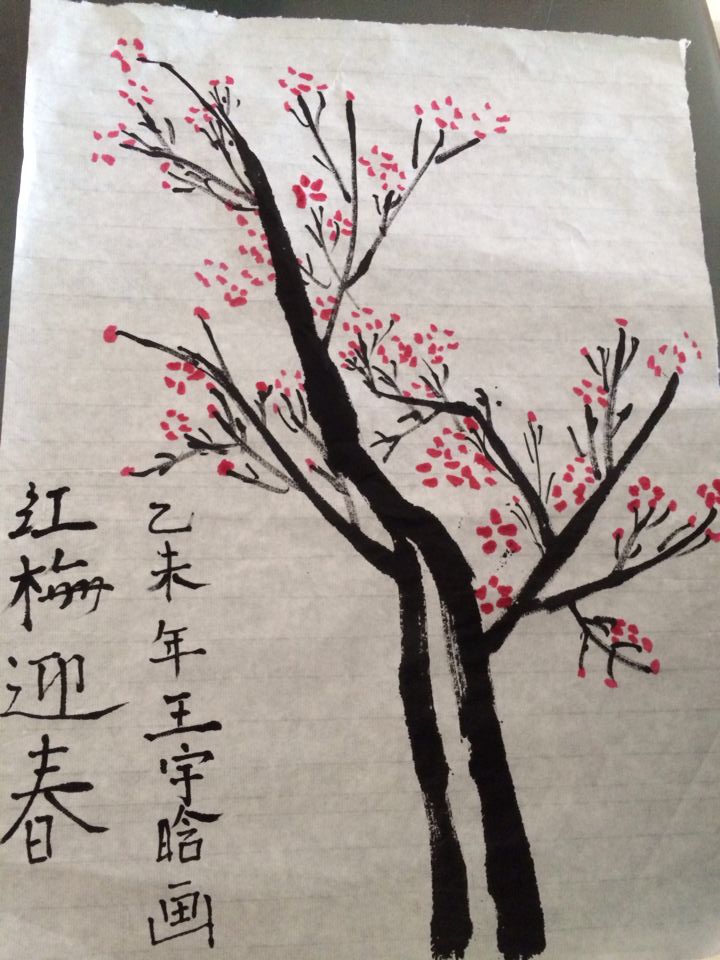 红梅迎春
乙未年王宇晗画